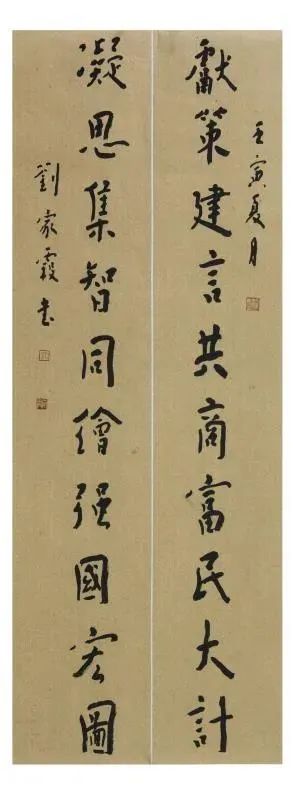 獻策建言共商富民大計
壬寅夏月
凝思集智同繪强國宏圖
劉家霞书